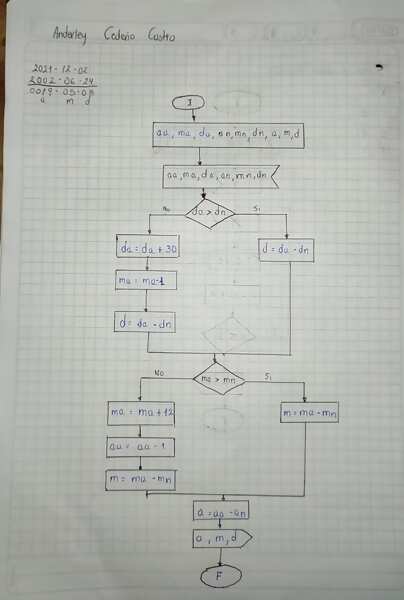 Anderley Cedeño Castro
2021-12-02
2002-06-24
0019-05-08
a m d
I
aa, ma, da, an, mn, dn, a, m, d
aa, ma, da, an, mn, dn
da > dn
No
Si
da = da + 30
d = da - dn
ma = ma-1
d = da - dn
ma > mn
No
Si
ma = ma + 12
m = ma - mn
aa = aa - 1
m = ma - mn
a = aa - an
a, m, d
F